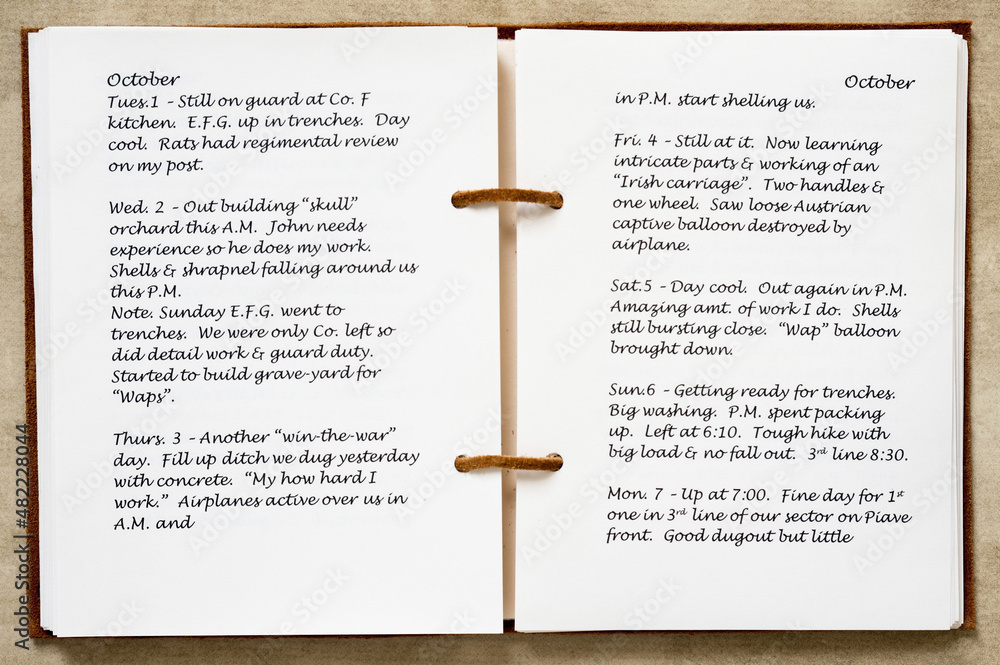 October
Tues.1 - Still on guard at Co. F
kitchen. E.F.G. up in trenches. Day
cool. Rats had regimental review
on my post.
Wed. 2 - Out building "skull"
orchard this A.M. John needs
experience so he does my work.
Shells & shrapnel falling around us
this P.M.
Note. Sunday E.F.G. went to
trenches. We were only Co. left so
did detail work & guard duty.
Started to build grave-yard for
"Waps".
Thurs. 3 - Another "win-the-war"
day. Fill up ditch we dug yesterday
with concrete. "My how hard I
work." Airplanes active over us in
A.M. and
October
in P.M. start shelling us.
Fri. 4 - Still at it. Now learning
intricate parts & working of an
"Irish carriage". Two handles &
one wheel. Saw loose Austrian
captive balloon destroyed by
airplane.
Sat.5 - Day cool. Out again in P.M.
Amazing amt. of work I do. Shells
still bursting close. "Wap" balloon
brought down.
Sun.6 - Getting ready for trenches.
Big washing. P.M. spent packing
up. Left at 6:10. Tough hike with
big load & no fall out. 3rd line 8:30.
Mon. 7 - Up at 7:00. Fine day for 1st
one in 3rd line of our sector on Piave
front. Good dugout but little
Adobe Stock | #482228044